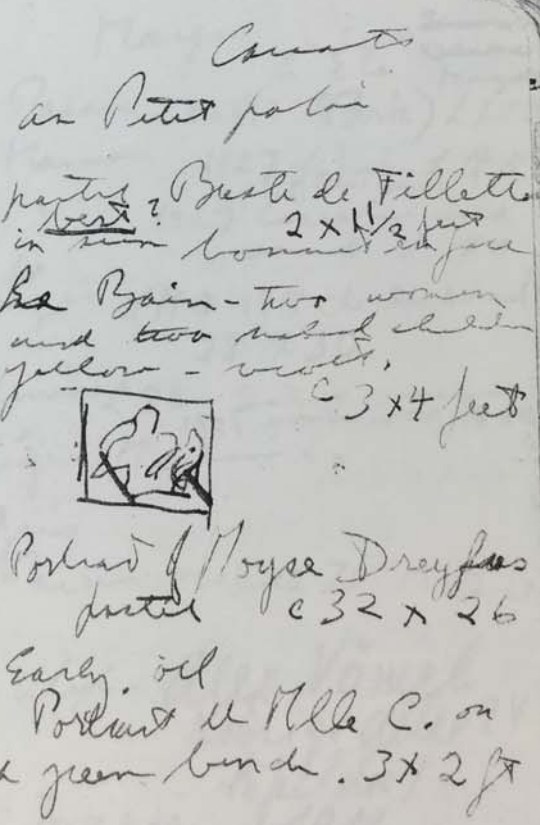 Cassatt
au Petit palais
pastel Buste de Fillette
best? 2 x 1 1/2 feet
in sun bonnet en face
Le Bain - two women
and two naked children
yellow - violet.
c 3 x 4 feet
Portrait of Moyse Dreyfus
pastel c 32 x 26
Early. oil
Portrait de Mlle C. on
a green bench. 3 x 2 ft